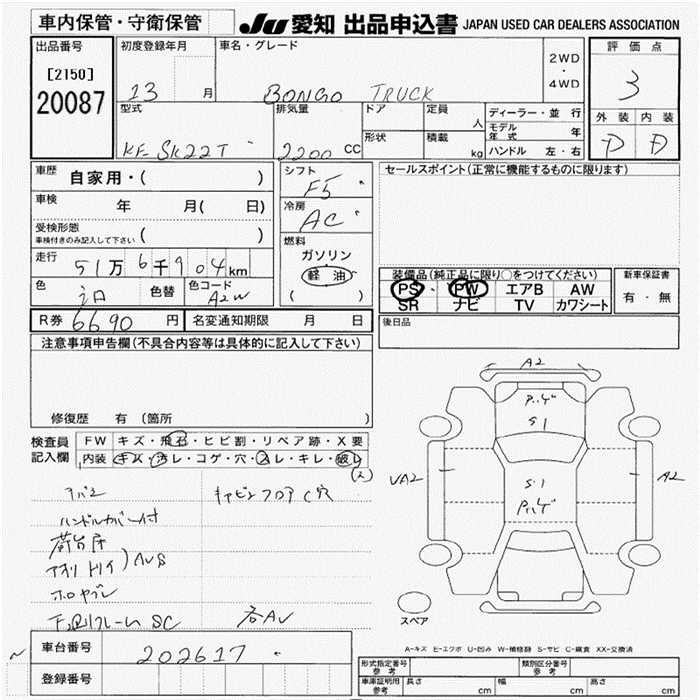 車内保管・守衛保管
JU 愛知 出品申込書 JAPAN USED CAR DEALERS ASSOCIATION
出品番号
[2150]
20087
初度登録年月
13 月
車名・グレード
BONGO TRUCK
2WD
・
4WD
評価点
3
型式
KF-SK22T
排気量
2200 CC
ドア
定員
人
形状
積載
kg
ディーラー・並 行
モデル年式 年
ハンドル 左・右
外装 内装
D D
車歴
自家用・( )
車検 年 月( 日)
受検形態
車検付きのみ記入して下さい ( )
走行
51万6千904km
色
色替
色コード
A2W
シフト
F5
冷房
AC
燃料
ガソリン
軽油
( )
セールスポイント(正常に機能するものに限ります)
装備品(純正品に限り○をつけてください)
PS PW エアB AW
SR ナビ TV カワシート
新車保証書
有・無
後日品
R券 6690 円
名変通知期限 月 日
注意事項申告欄(不具合内容等は具体的に記入して下さい)
修復歴 有 (箇所 )
検査員記入欄
FW キズ・飛石・ヒビ割・リペア跡・X要
内装 キズ・汚レ・コゲ・穴・スレ・キレ・破レ
(2)
ハンドルカバー付
荷台
アオリ トリイ ) AUS
ホロヤブレ
フレーム SC
各AU
キャビンフロアC穴
A2
S1
S1
UA2
A2
スペア
A-キズ E-エクボ U-凹み W-補修跡 S-サビ C-腐食 XX-交換済
車台番号
202617
登録番号
形式指定番号
参考
類別区分番号
参考
車庫証明用
参考
長さ cm
幅 cm
高さ cm